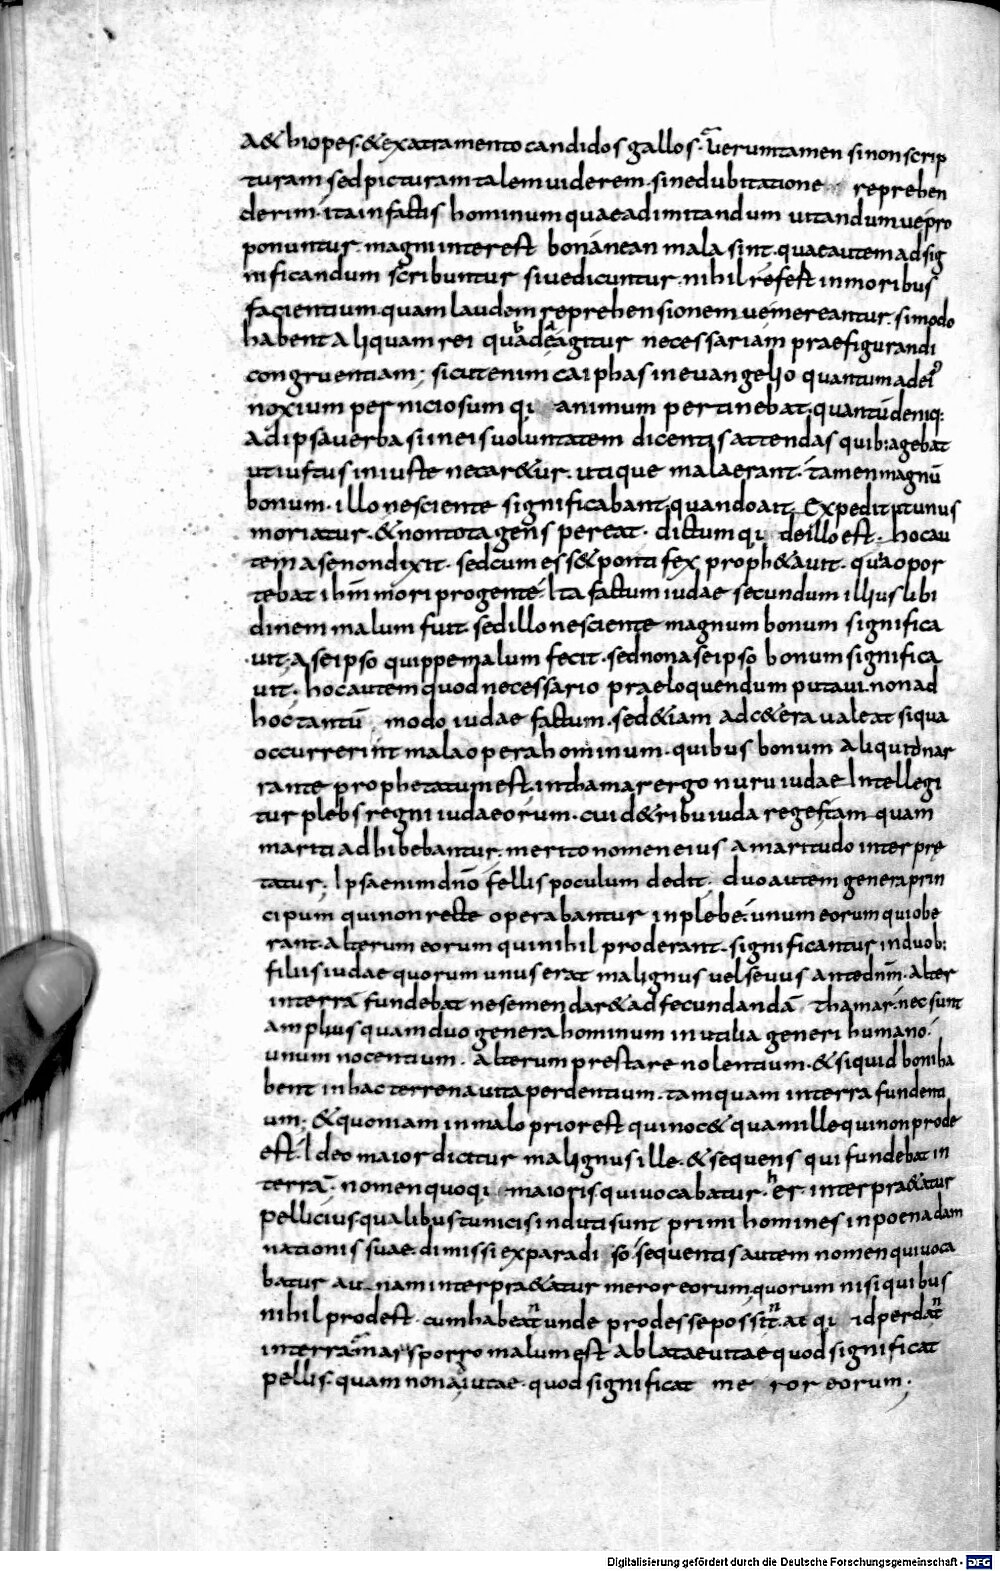 A& hiopes·&exatramento candidos gallos· Uerumtamen sinonscrip
turam sedpicturamtalemuiderem·sinedubitatione reprehen
derim·itainfactis hominumquaeadimitandum uitandumuepro
ponuntur·magniinterest bonanean mala sint·quaeautemadsig
nificandum scribuntur siuedicuntur·nihilrefert inmoribus
facientium·quamlaudem reprehensionemuemereantur·simodo
habent aliquamrei quadeagitur necessariam praefigurandi
congruentiam; sicutenim caiphas in euangelio quantumadei'
noxium perniciosumq; animum pertinebat·quantūdeniq:
adipsauerbasiineisuoluntatem dicentis attendas quib:agebat
utiustusiniuste necar&ur·utique malaerant·tamenmagnū
bonum·illonesciente significabant·quandoait· Expeditutunus
moriatur·&nontotagens pereat· dictumq; deilloest· hocau
temasenondixit· sedcumess& pontifex proph&auit· quiaopor
tebat ihm mori progente· Ita factum iudae secundum illiuslibi
dinem malum fuit·sedillonesciente magnumbonum significa
uit·a seipso quippemalum fecit·sednonaseipso bonumsignifica
uit· hocautemquodnecessario praeloquendum putaui·nonad
hoctantū modo iudae factum·sed&iam adc&era ualeat siqua
occurrerint malaoperahominum·quibus bonum aliquidnar
rante prophetatumest·inthamar ergo nuru iudae Intellegi
tur plebs regni iudaeorum·cuide&ribuiuda regestam quam
mariti adhibebantur·meritonomeneius amaritudo interpre
tatur; Ipsaenimdno fellis poculum dedit· duoautem generaprin
cipum quinonrecte operabantur inplebe·unum eorum quiobe
rant·alterum eorum quinihil proderant·significanturinduob:
filiisiudae quorum unuserat malignus uelseuus antednm·alter
interrā fundebat nesemen dar&adfecundandā thamar·necsunt
amplius quamduo genera hominum inutilia generi humano·
unum nocentium· alterum prestare nolentium·&siquid boniha
bent inhac terrenauitaperdentium·tamquam interra fundenti
um; &quoniam inmalo priorest quinoc& quamillequinonprode
est·Ideo maiordicitur malignusille·&sequens qui fundebat in
terrā· nomenquoq; maiorisquiuocabatur·her·interpra&atur
pellicius·qualibustunicisinduti sunt primi homines inpoenadam
nationis suae·dimissi exparadi so·sequentis autem nomenquiuoca
batur au nam interpra&atur meror eorum·quorum nisi quibus
nihilprodest·cumhabeantunde prodesseposssint·at q; idperdant
interramaisporro malumest ablataeuitaequodsignificat
pellis·quam nonaiutae·quodsignificat me ror eorum;
Digitalisierung gefördert durch die Deutsche Forschungsgemeinschaft - DFG